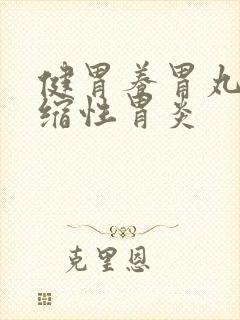 健胃养胃丸
缩性胃炎
克里恩